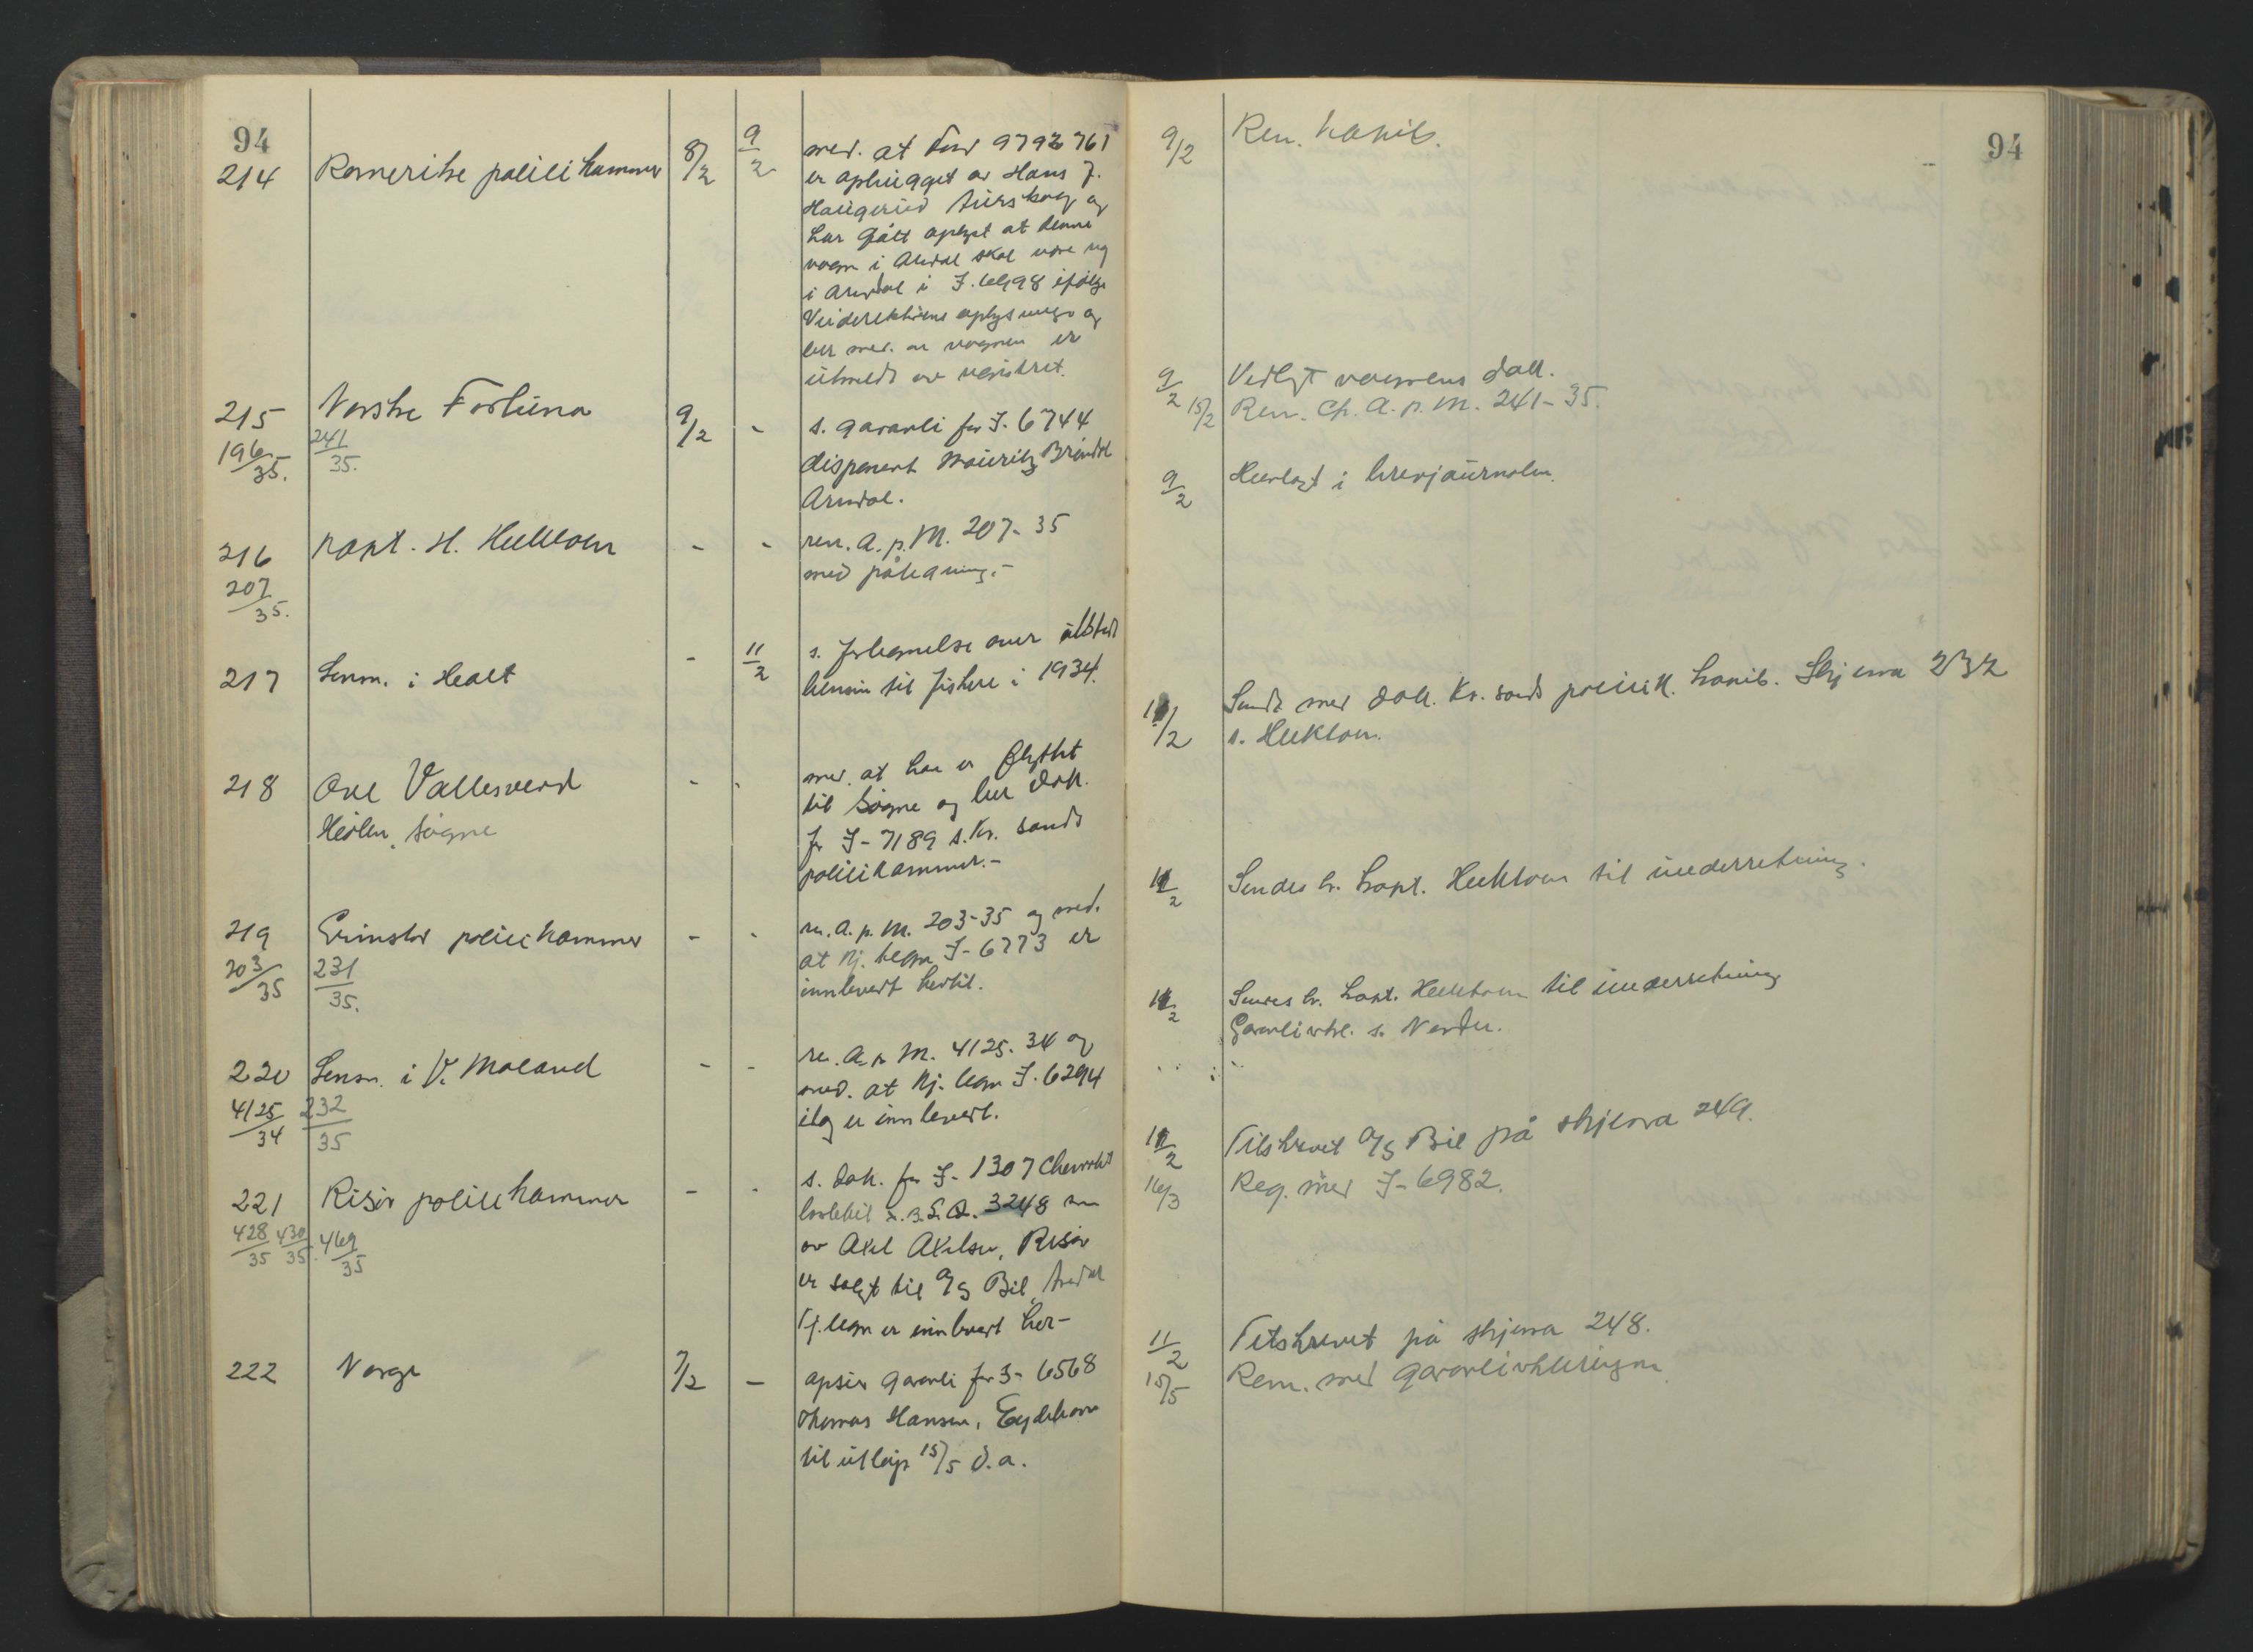 94
214 Romerike politikammer 8/2 9/2 med. at Ford 9792761
er ophugget av Hans J.
Haugerud Aurskog og
har fått oplyst at denne
vogn i Arendal skal være reg
i Arendal i I. 6998 ifølge
Veidirektørens oplysninger og
ber med. om vognen er
utmeldt av registret.
215 Norske Fortuna 9/2 - s. garanti for I. 6744
196/35. 241/35. disponent Mauritz Brindal
Arendal.
216 Kapt. H. Hektoen - - ren. A. p. M. 207-35
207/35. med påtegning.-
217 Lensm. i Holt - 11/2 s. fortegnelse over utstedt
bensin til fiskere i 1934.
218 Ove Vallesverd - - med. at han er flyttet
Høllen, Søgne til Søgne og ber dok.
for I-7189 s. Kr. sands
politikammer.-
219 Grimstad politikammer - - ren. A. p. M. 203-35 og med.
203/35 231/35. at kj. tegn I-6773 er
innlevert hertil.
220 Lensm. i V. Moland - - ren. A. p. M. 4125-34 og
4125/34 232/35 med. at kj. tegn I. 6294
idag er innlevert.
221 Risør politikammer - - s. dok. for I-1307 Chevrolet
428/35 430/35. 469/35 lastebil 3248 som
av Axel Axelsen, Risør
er solgt til A/S Bil, Arendal
Kj. tegn er innlevert her-
222 Norge 7/2 - opsier garanti for I-6568
Thomas Hansen, Eydehavn
til utløp 15/5 d.a.
94
9/2 Ren. kapt.
9/2 Vedlagt vognens dok.
15/2 Ren. Ch. A. p. M. 241-35.
9/2 Henlagt i brevjournalen.
11/2 Sendt med dok. Kr. sands politik. Skjema 232
s. Hektoen.
11/2 Sendes hr. kapt. Hektoen til underretning.
11/2 Sendes hr. kapt. Hektoen til underretning
Garantierkl. s. Norden.
11/2 Tilskrevet A/S Bil på skjema 249.
16/3 Reg. med I-6982.
11/2 Tilskrevet på skjema 248.
15/5 Ren. med garantierklæringen